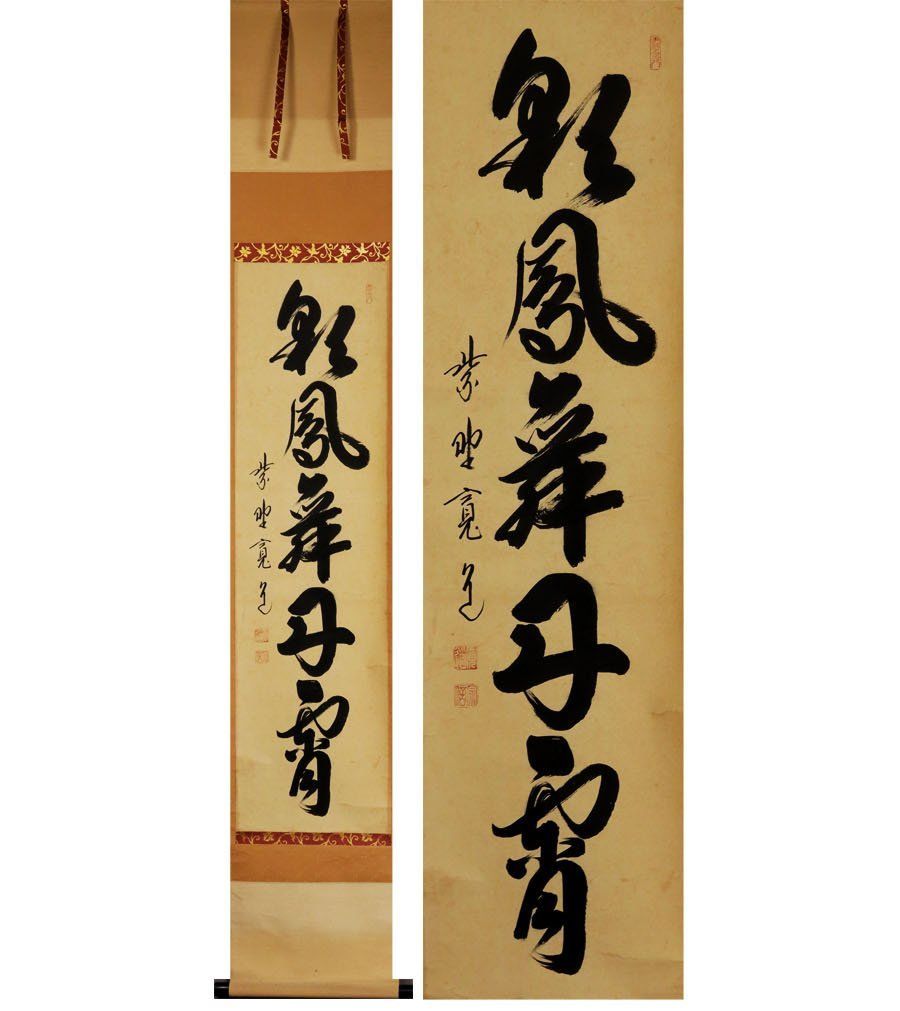 彩鳳舞丹霄
紫野寛道
彩鳳舞丹霄
紫野寛道